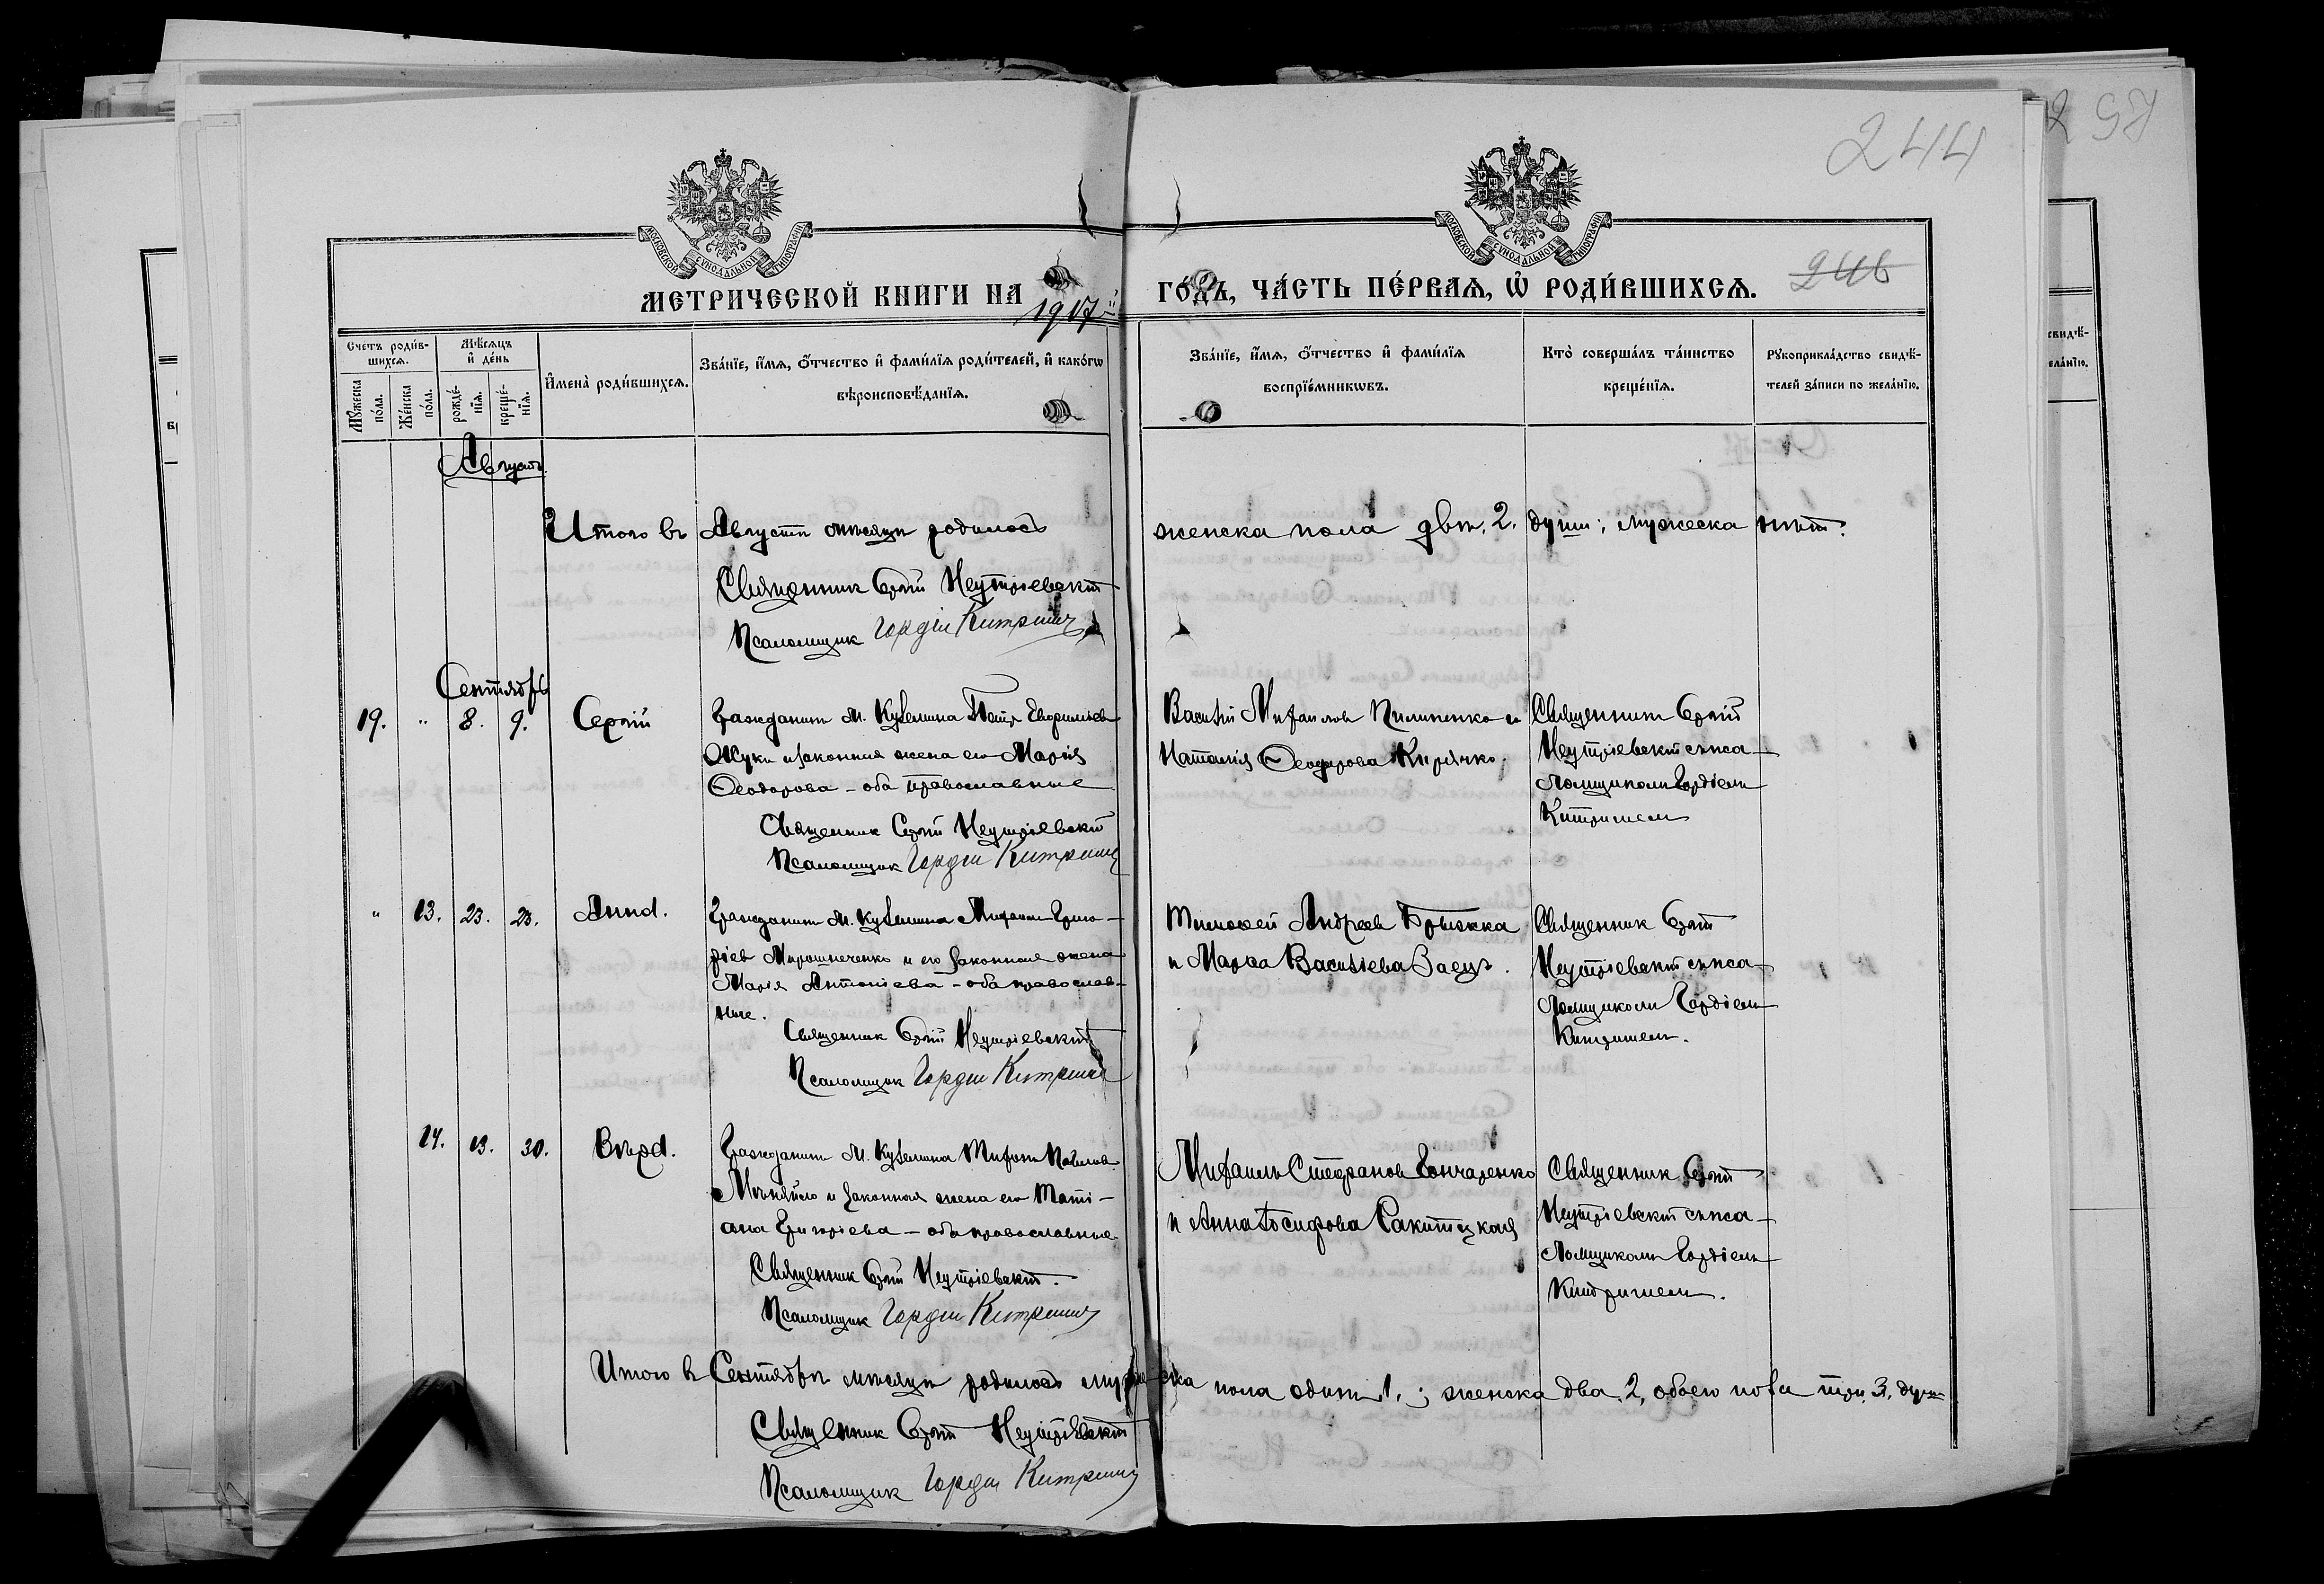 244
257
МОСКОВСКОЙ СѴНОДАЛЬНОЙ ТИПОГРАФІИ
МОСКОВСКОЙ СѴНОДАЛЬНОЙ ТИПОГРАФІИ
МЕТРИЧЕСКОЙ КНИГИ НА 1917й
ГО́ДЪ, ЧА́СТЬ ПЕ́РВАѦ, Ѽ РОДИ́ВШИХСѦ.
246
Счетъ роди́в-
шихсѧ.
Мѣ́сѧцъ
и҆ де́нь
Мꙋжеска
по́ла.
Же́нска
по́ла.
рожде́-
нїѧ.
креще́-
нїѧ.
И҆мена̀ роди́вшихсѧ.
Зва́нїе, и҆́мѧ, ѻ҆́тчество и҆ фамі́лїѧ роди́телей, и҆ како́гѡ
вѣроисповѣ́данїѧ.
Зва́нїе, и҆́мѧ, ѻ҆́тчество и҆ фамі́лїѧ
воспрїе́мникѡвъ.
Кто̀ соверша́лъ та́инство
креще́нїѧ.
Рꙋкоприкла́дство свидѣ́-
телей за́писи по жела́нїю.
Августъ.
Итого въ Августѣ мѣсяцѣ родилось женска пола двѣ. 2. души; мужеска нѣт.
Священник Сергій Неутріевскій
Псаломщик Гордій Китриш
Сентябрь
19. " 8. 9. Сергій
Гражданин м. Куземина Петр
Жук и законная жена его Марія
Ѳеодорова - оба православные
Священник Сергій Неутріевскій
Псаломщик Гордій Китриш
Василій Михаилов Пилипенко и
Наталія Ѳеодорова Кирячко.
Священник Сергій
Неутріевскій с пса-
ломщиком Гордіем
Китришем
" 13. 23. 23. Анна.
Гражданин м. Куземина Михаил Григо-
ріев Мирошниченко и его законная жена
Марія Антоніева - оба православ-
ные.
Священник Сергій Неутріевскій
Псаломщик Гордій Китриш
Тимоѳей Андреев Брыжка
и Марѳа Василіева Заец.
Священник Сергій
Неутріевскій с пса-
ломщиком Гордіем
Китришем.
14. 13. 30. Вѣра.
Гражданин м. Куземина
и законная жена его Тати-
ана Григоріева - оба православные
Священник Сергій Неутріевскій.
Псаломщик Гордій Китриш
Михаил Стефанов Гончаренко
и Анна Іосифова Ракитицкая
Священник Сергій
Неутріевскій с пса-
ломщиком Гордіем
Китришем.
Итого в Сентябрѣ мѣсяцѣ родилось мужеска пола один 1.; женска два 2, обоего пола три. 3. души
Священник Сергій Неутріевскій
Псаломщик Гордій Китриш